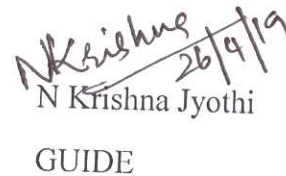 NKrishna
26/4/19
N Krishna Jyothi
GUIDE